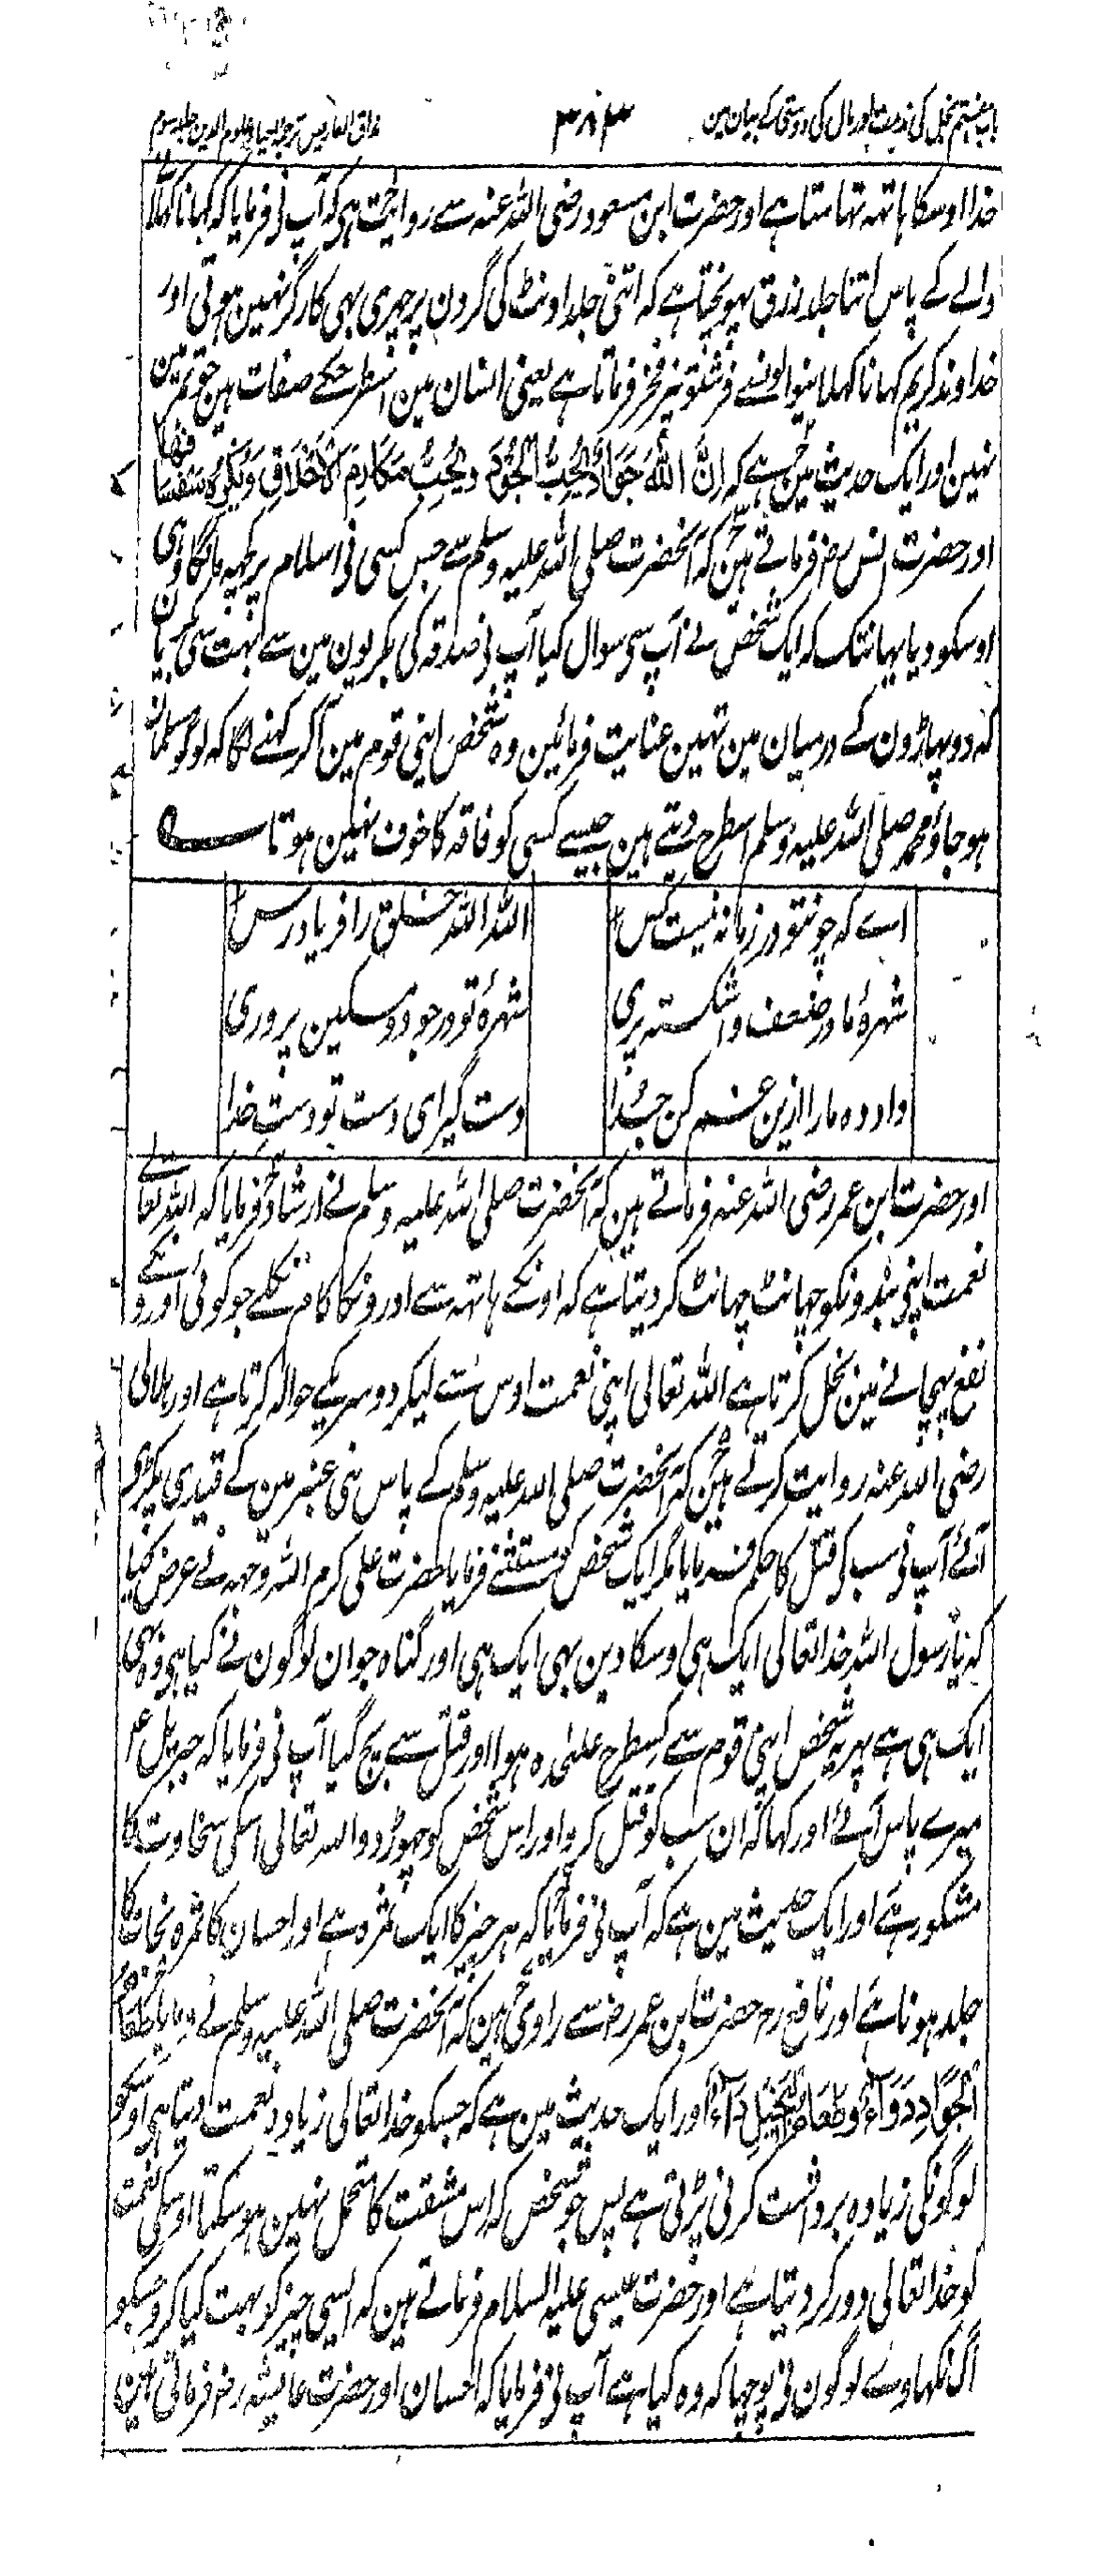 باب ہفتم بخل کی مذمت اور مال کی دوستی کے بیان مین ۳۸۳ مذاق العارفین ترجمہ احیاء علوم الدین جلد سوم
خدا اوسکا ہاتہہ تہامتا ہے اور حضرت ابن مسعود رضی اللہ عنہ سے روایت ہی کہ آپ نی فرمایا کہ کہانا کہلانے
والے کے پاس اتنا جلد رزق پہونچتا ہے کہ اتنی جلد اونٹ کی گردن پر چہری بہی کارگر نہین ہوتی اور
خداوند کریم کہانا کہلانیوالونسے فرشتونپر فخر فرماتا ہے یعنی انسان مین اسطرحکے صفات ہین جو تم مین
نہین اور ایک حدیث مین ہے کہ اِنَّ اللّٰہَ جَوَادٌ یُحِبُّ الْجُوْدَ وَیُحِبُّ مَکَارِمَ الْاَخْلَاقِ وَیَکْرَہُ سَفْسَافَھَا
اور حضرت انس رض فرماتے ہین کہ آنحضرت صلی اللہ علیہ وسلم سے جس کسی نی اسلام پر کچہہ مانگا وہی
اوسکو دیا یہانتک کہ ایک شخص نے آپ سی سوال کیا آپ نی صدقہ کی بکریون مین سے بہت سی بکریان
کہ دو پہاڑون کے درمیان مین تہین عنایت فرمائین وہ شخص اپنی قوم مین آکر کہنے لگا کہ لوگو مسلمان
ہو جاؤ محمد صلی اللہ علیہ وسلم اسطرح دیتے ہین جیسے کسی کو فاقہ کا خوف نہین ہوتا
اے کہ چونتو در زمانہ نیست کس اللہ اللہ خلق را فریاد رس
شہرۂ ما در ضعف و اشکستہ پری شہرۂ تو در جود و مسکین پروری
داد دہ ما را ازین غم کن جدا دست گیر ای دست تو دست خدا
اور حضرت ابن عمر رضی اللہ عنہ فرماتے ہین کہ آنحضرت صلی اللہ علیہ وسلم نے ارشاد فرمایا کہ اللہ تعالے
نعمت اپنی بندونکو چہانٹ چہانٹ کر دیتا ہے کہ اونکے ہاتہہ سے اورونکا کام نکلے جو کوئی اورونکے
نفع پہچانے مین بخل کرتا ہے اللہ تعالی اپنی نعمت اوس سے لیکر دوسریکے حوالہ کرتا ہے اور ہلالی
رضی اللہ عنہ روایت کرتے ہین کہ آنحضرت صلی اللہ علیہ وسلم کے پاس بنی عنبر مین کے قیدی پکڑی
آئے آپ نی سب کی قتل کا حکم فرمایا مگر ایک شخص کو مستثنے فرمایا حضرت علی کرم اللہ وجہہ نے عرض کیا
کہ یا رسول اللہ خدا تعالی ایک ہی اوسکا دین بہی ایک ہی اور گناہ جو ان لوگون نے کیا ہی وہ بہی
ایک ہی ہے پہر یہ شخص اپنی قوم سے کسطرح علیٰحدہ ہوا اور قتل سے بچ گیا آپ نی فرمایا کہ جبریل ع
میرے پاس آئے اور کہا کہ ان سب کو قتل کرو اور اس شخص کو چہوڑ دو اللہ تعالی اسکی سخاوت کا
مشکور ہے اور ایک حدیث مین ہے کہ آپ نی فرمایا کہ ہر چیز کا ایک ثمرہ ہے اور احسان کا ثمرہ نجات کا
جلد ہونا ہے اور نافع رح حضرت ابن عمر رض سے راوی ہین کہ آنحضرت صلی اللہ علیہ وسلم نے فرمایا طَعَامُ
الْجَوَادِ دَوَاءٌ وَطَعَامُ الْبَخِیْلِ دَاءٌ اور ایک حدیث مین ہے کہ جسکو خدا تعالی زیادہ نعمت دیتا ہی اوسکو
لوگونکی زیادہ برداشت کرنی پڑتی ہے پس جو شخص کہ اس مشقت کا متحمل نہین ہو سکتا اوسکی نعمت
کو خدا تعالی دور کر دیتا ہے اور حضرت عیسی علیہ السلام فرماتے ہین کہ ایسی چیز کو بہت کیا کرو جسکو
آگ نکہاوے لوگون نی پوچہا کہ وہ کیا ہے آپ نی فرمایا کہ احسان اور حضرت عائیشہ رض فرماتی ہین